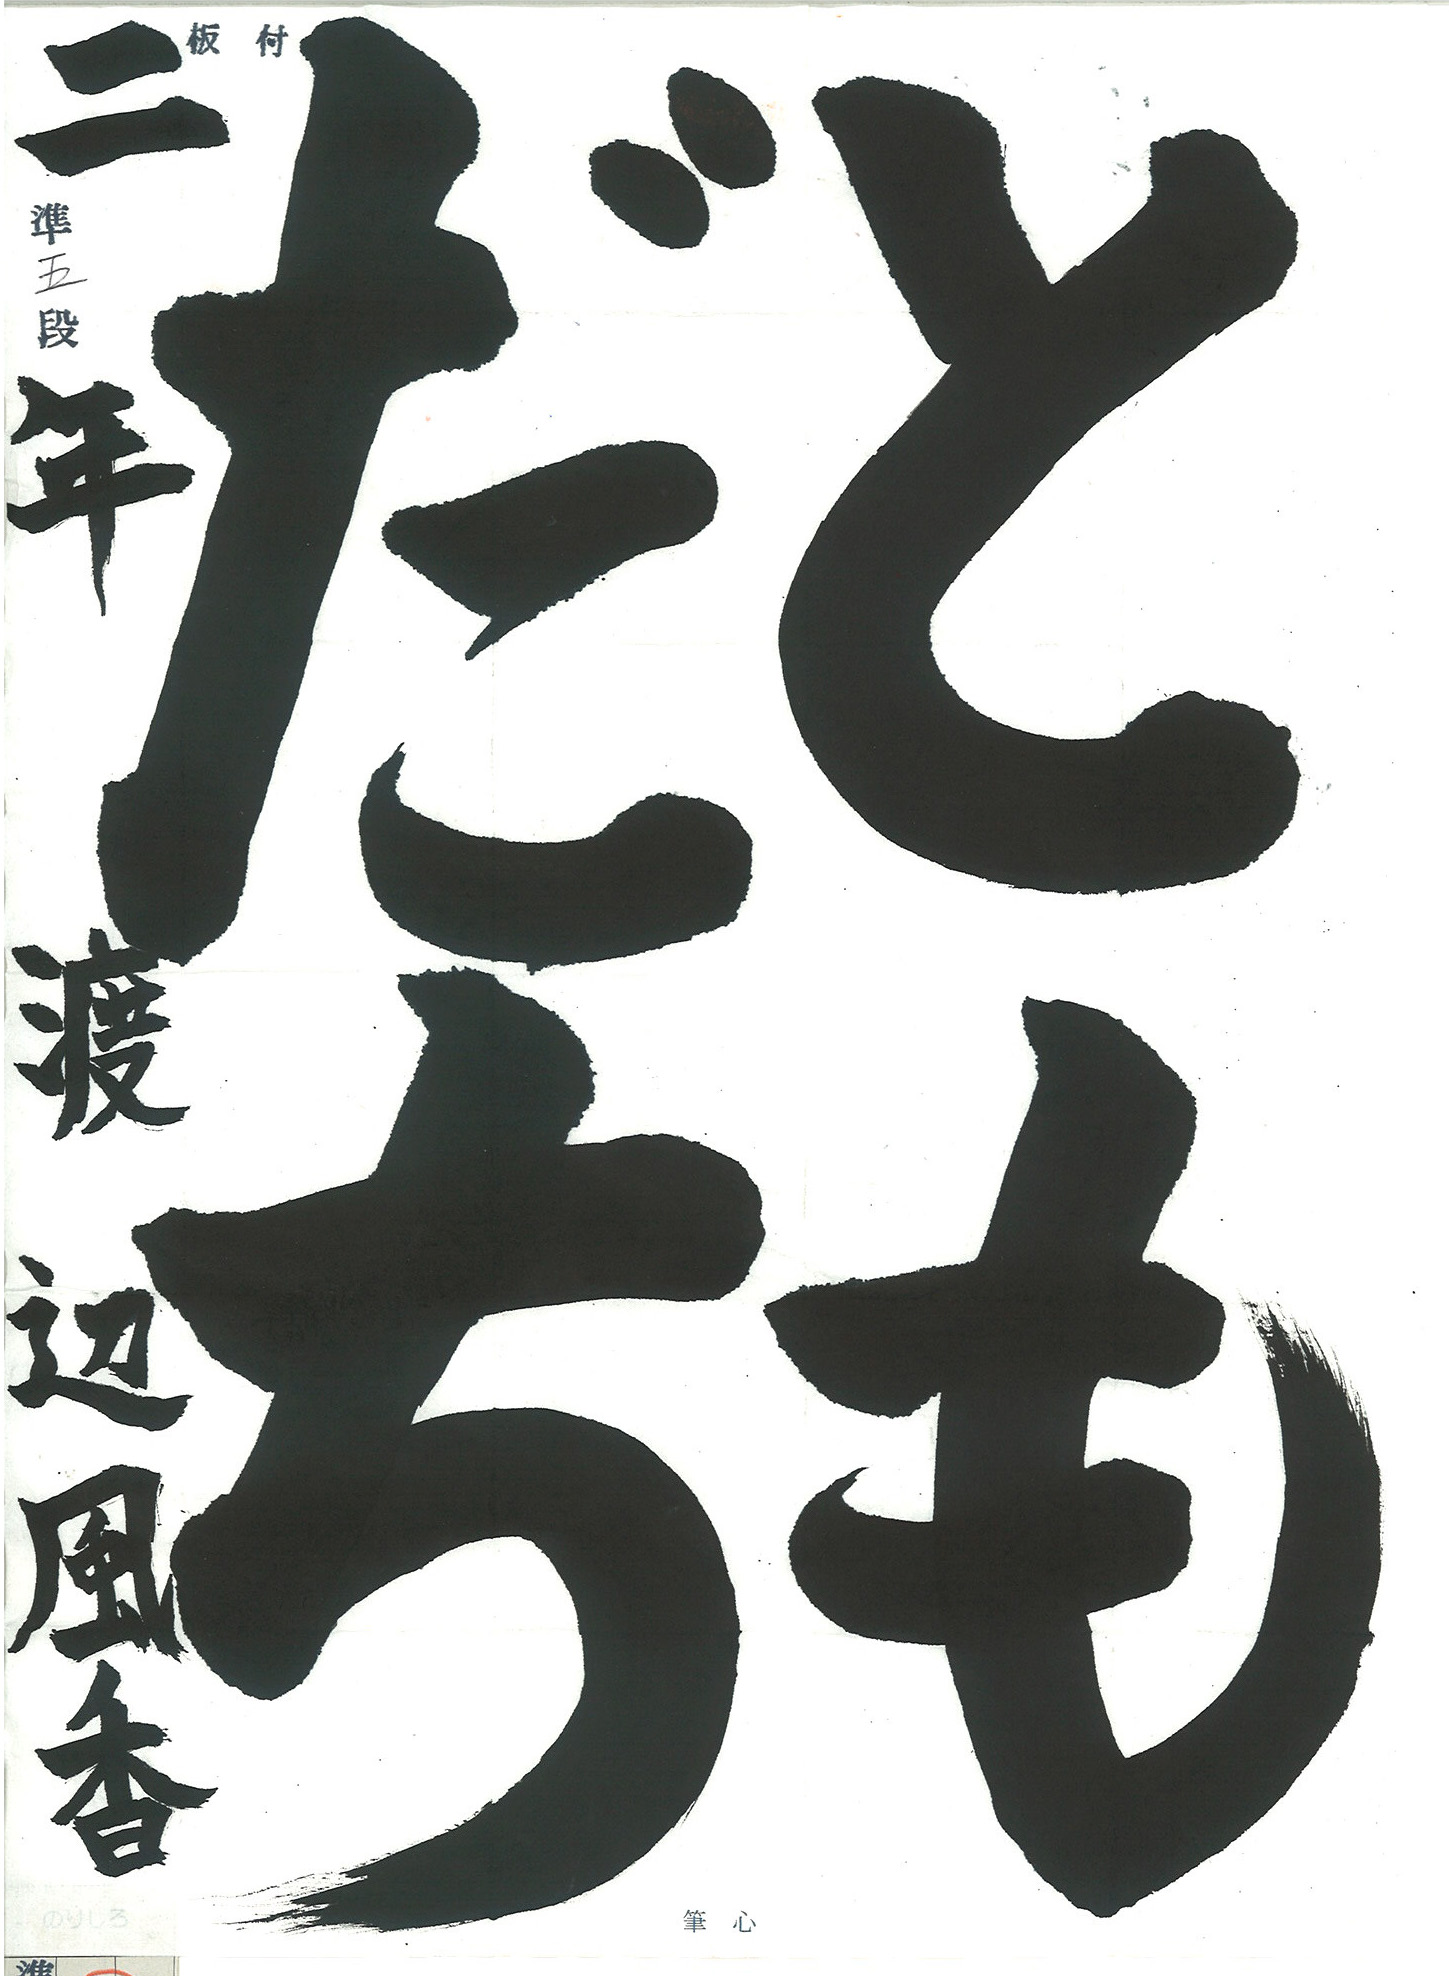 とも
だち
二年 渡辺風香
準五段
板付
心筆
のりしろ
準